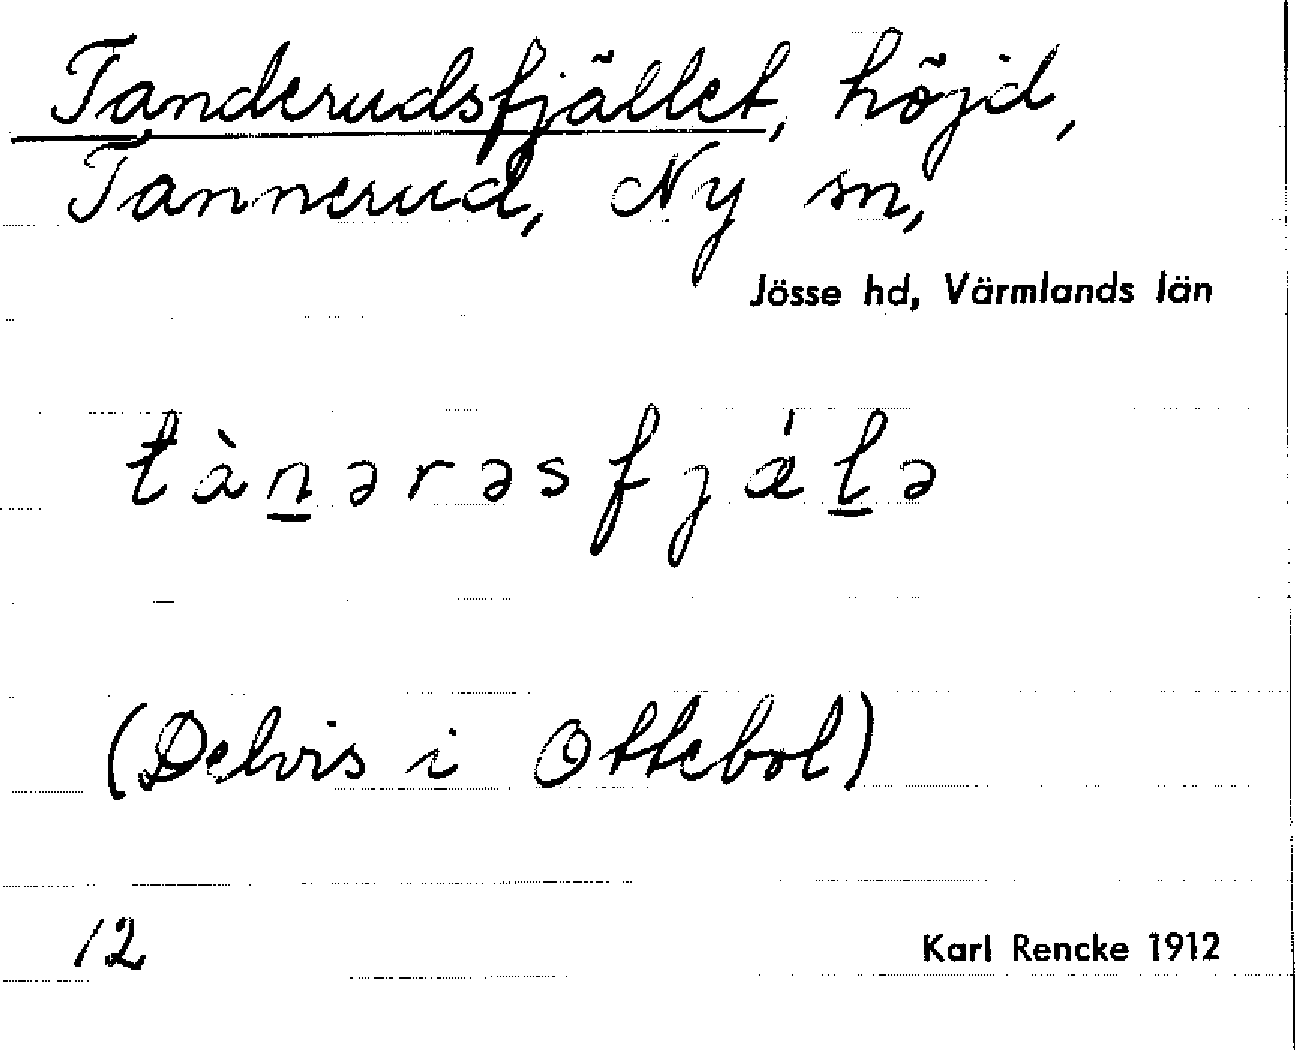 Tanderudsfjället, höjd,
Tannerud, Ny sn,
Jösse hd, Värmlands län
tàn̲ərəsfjǽl̲ə
(Delvis i Ottebol)
12
Karl Rencke 1912